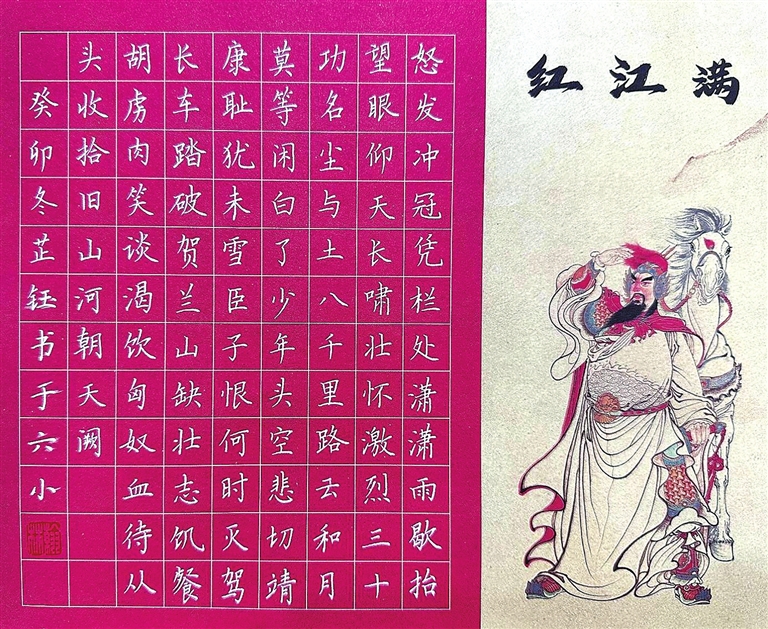 满江红
怒发冲冠凭栏处潇潇雨歇抬
望眼仰天长啸壮怀激烈三十
功名尘与土八千里路云和月
莫等闲白了少年头空悲切靖
康耻犹未雪臣子恨何时灭驾
长车踏破贺兰山缺壮志饥餐
胡虏肉笑谈渴饮匈奴血待从
头收拾旧山河朝天阙
癸卯冬芷钰书于六小